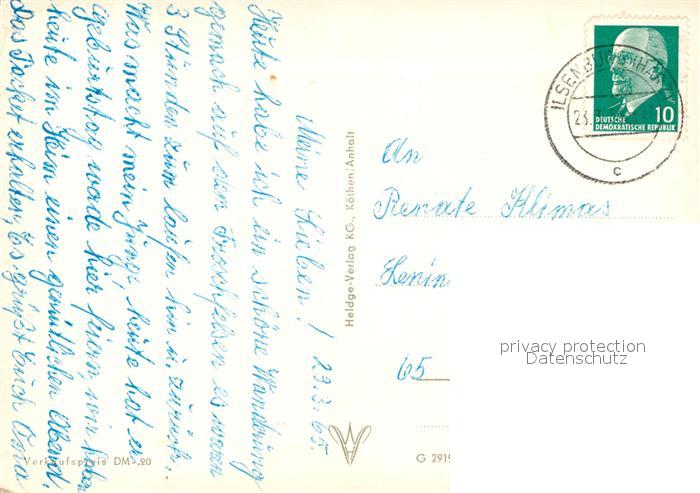 Meine Lieben! 23.3.65.
Heute habe ich ein schöne Wanderung
gemach auf den Froschfelsen es waren
3 Stunden zum laufen hin u. zurück.
Was macht mein Junge, heute hat er
geburtstag wurde hier feiern, wir haben
heute im Heim einen gemütlichen Abend.
Das Packet erhalten, Es grüßt Euch Oma
Verkaufspreis DM -,20
Heldge-Verlag KG., Köthen/Anhalt
ILSENBURG (HARZ)
23.3.
c
10
DEUTSCHE
DEMOKRATISCHE REPUBLIK
An
Renate Klimas
Lenin
65
privacy protection
Datenschutz
G 2915